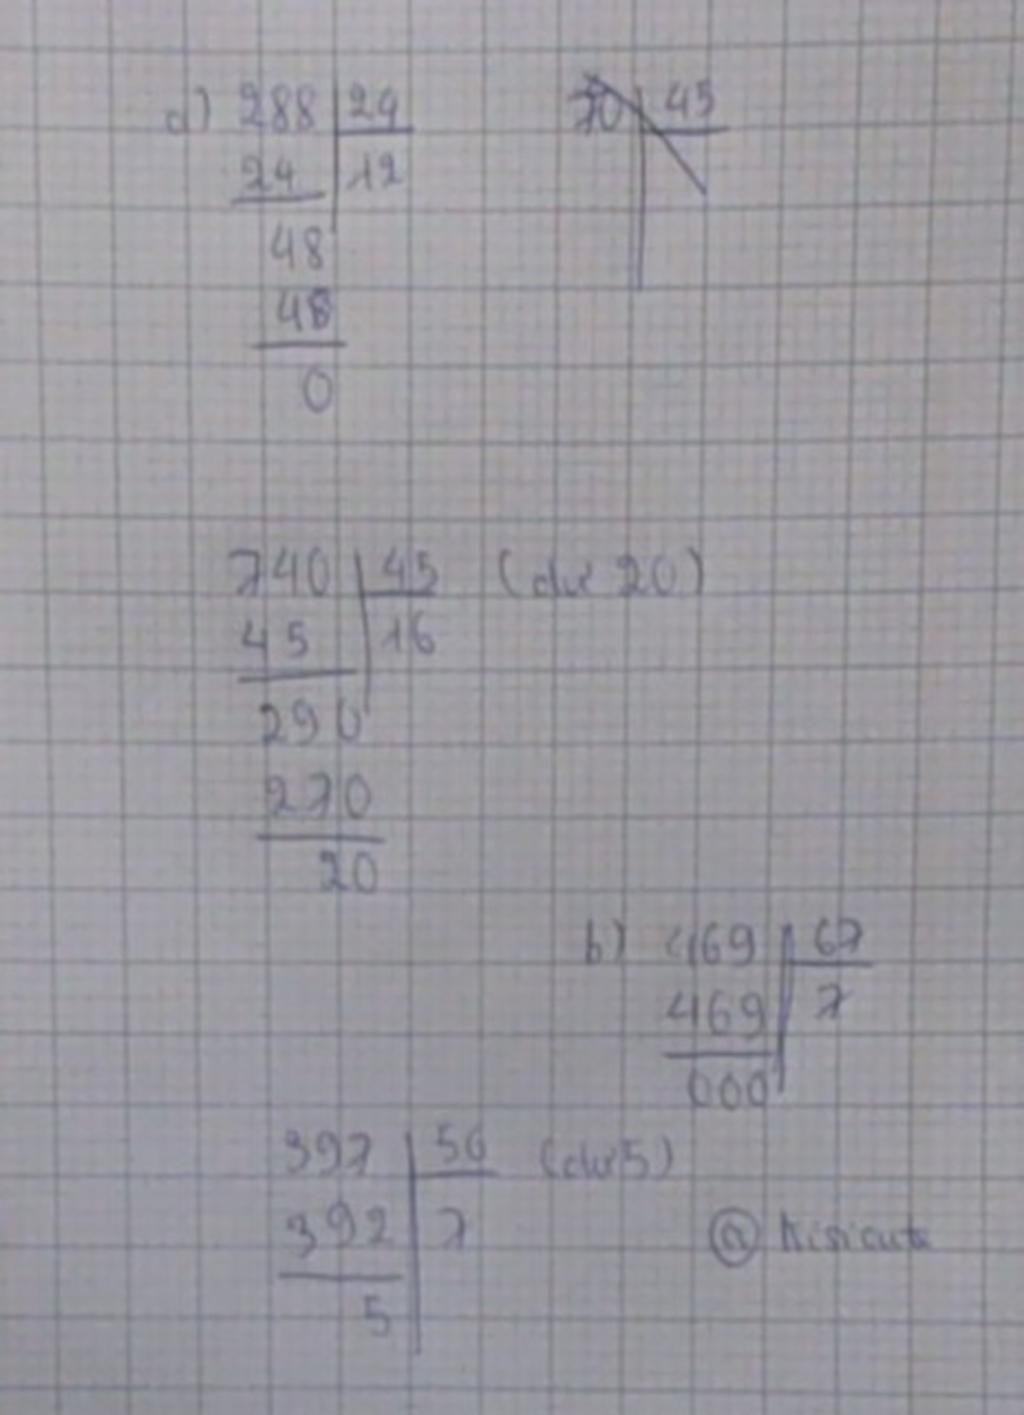 a) 288 24
24 12
48
48
0
45
740 45 (dư 20)
45 16
290
270
20
b) 469 67
469 7
000
397 56 (dư 5)
392 7
5